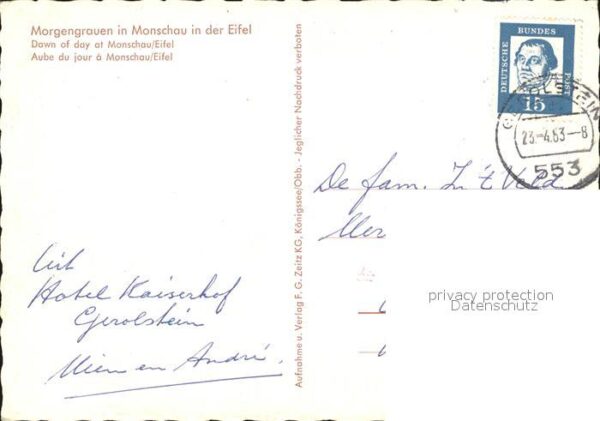 Morgengrauen in Monschau in der Eifel
Dawn of day at Monschau/Eifel
Aube du jour à Monschau/Eifel
DEUTSCHE BUNDES POST
15
GEROLSTEIN
23.-4.63--8
553
Aufnahme u. Verlag F. G. Zeitz KG, Königssee/Obb. - Jeglicher Nachdruck verboten
De fam. Z. 't Veld
Mer
uit
Hotel Kaiserhof
Gerolstein
Mien en André.
privacy protection
Datenschutz